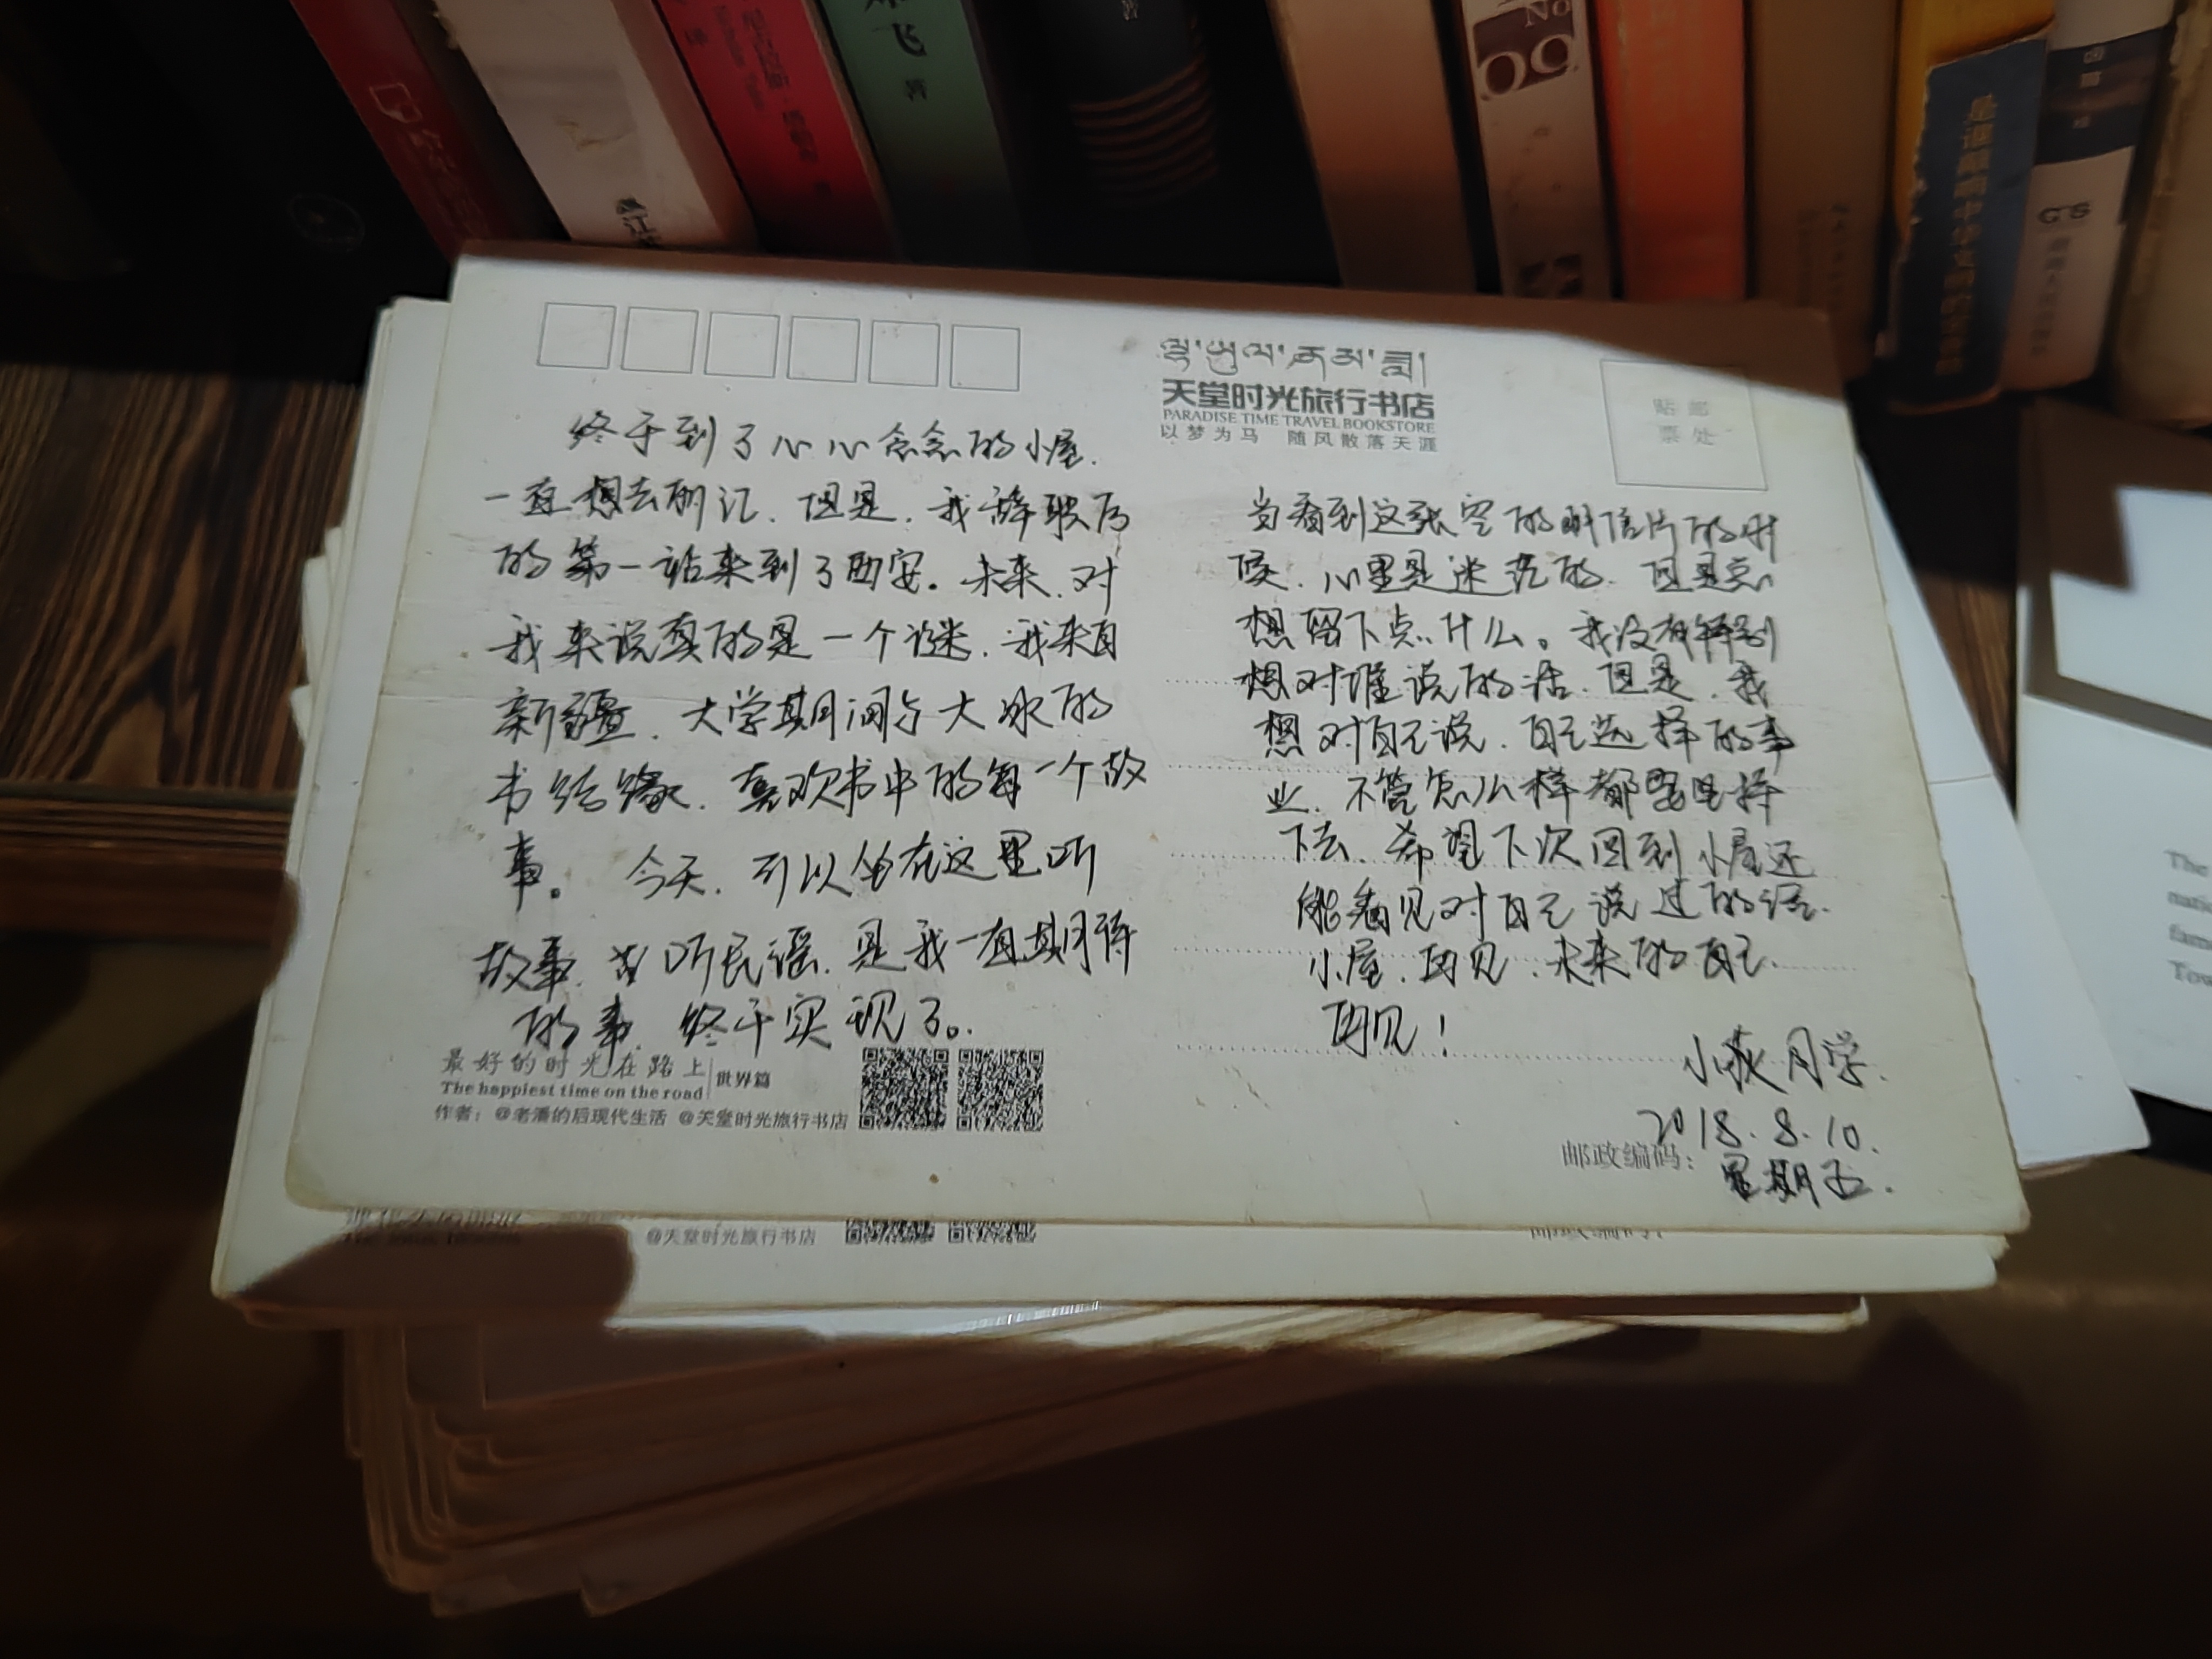 飞
著
No
09
GS
天堂时光旅行书店
PARADISE TIME TRAVEL BOOKSTORE
以梦为马 随风散落天涯
贴邮
票处
终于到了心心念念的小屋.
一直想去丽江.但是.我辞职后
的第一站来到了西安。未来.对
我来说真的是一个谜.我来自
新疆.大学期间与大冰的
书结缘.喜欢书中的每一个故
事。今天.可以坐在这里听
故事.听民谣.是我一直期待
的事.终于实现了。
当看到这张空的明信片的时
候.心里是迷茫的.但是总
想留下点什么。我没有特别
想对谁说的话.但是.我
想对自己说.自己选择的事
业.不管怎么样都要坚持
下去.希望下次回到小屋还
能看见对自己说过的话.
小屋.再见.未来的自己.
再见!
同学.
2018.8.10.
星期五.
最好的时光在路上 世界篇
The happiest time on the road
作者：@老潘的后现代生活 @天堂时光旅行书店
邮政编码：
@天堂时光旅行书店
The